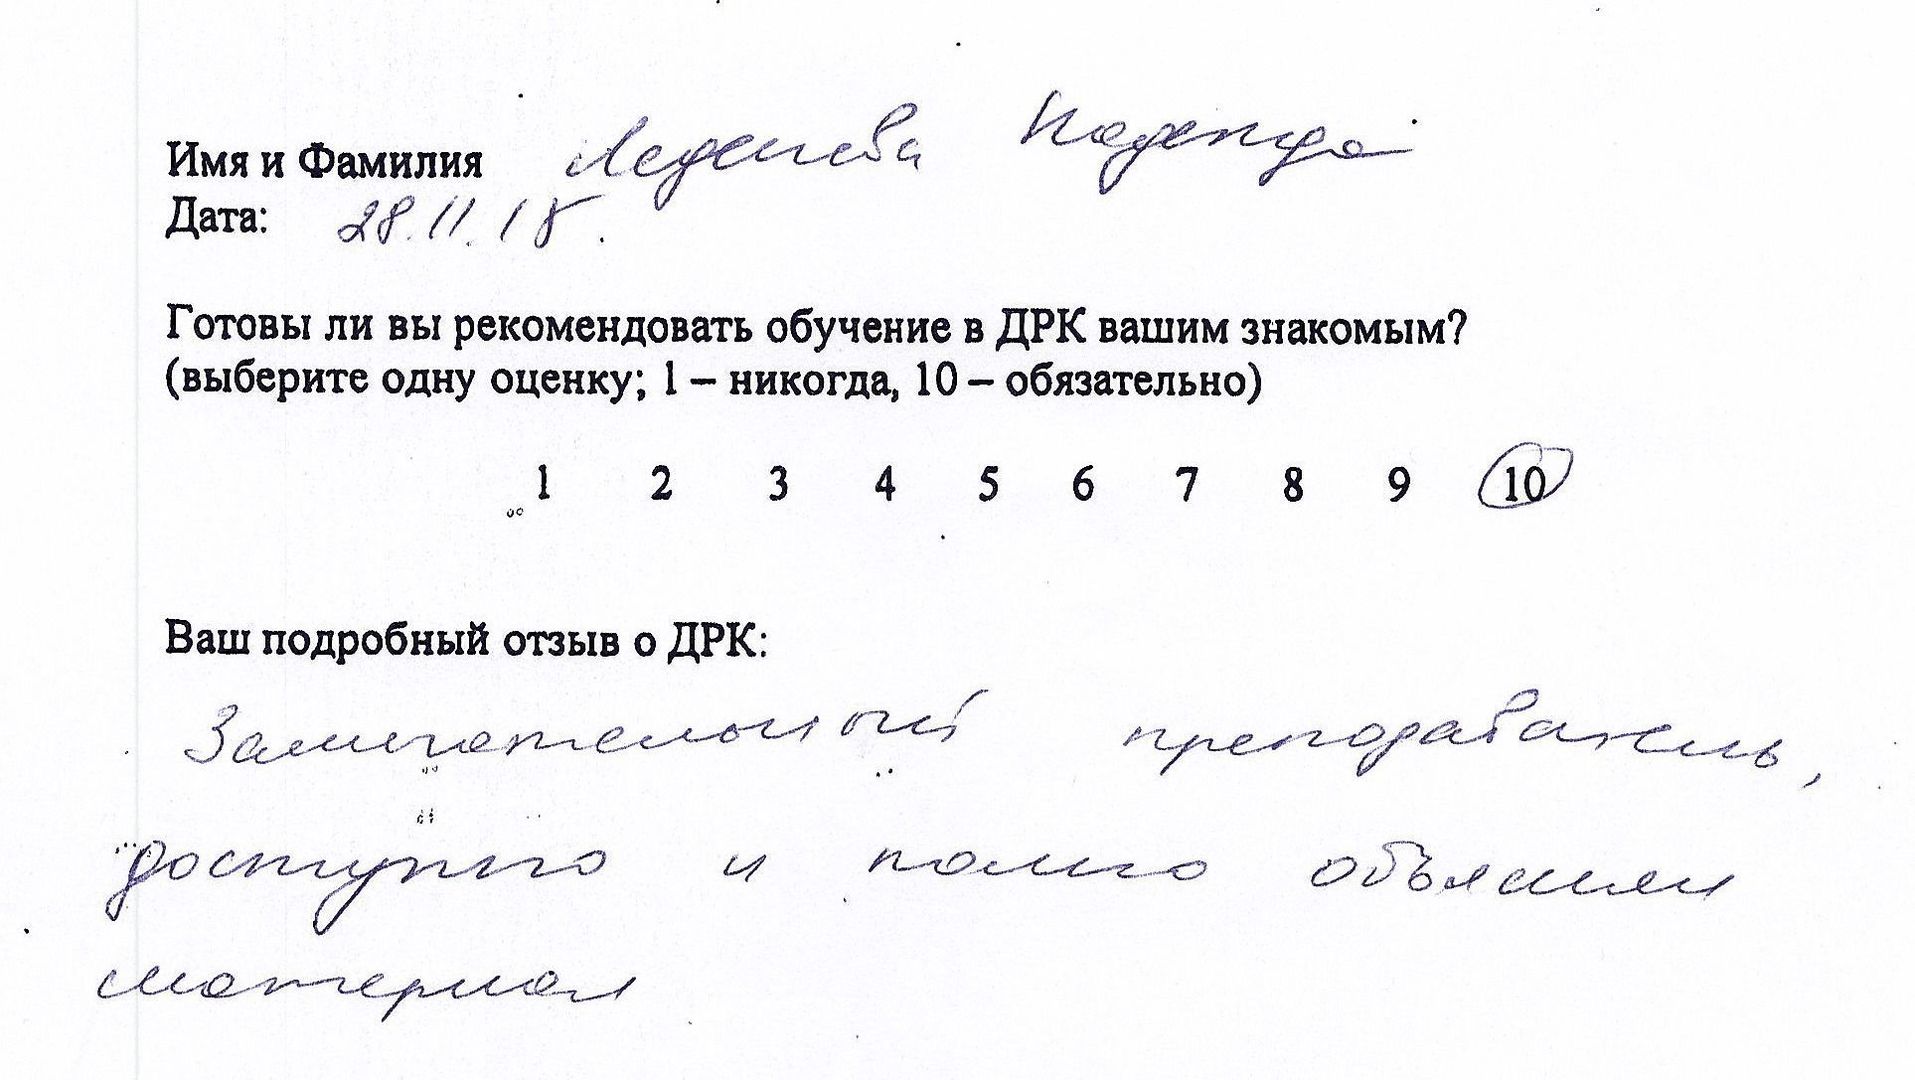 Имя и Фамилия Леденева Надежда
Дата: 28.11.18.
Готовы ли вы рекомендовать обучение в ДРК вашим знакомым?
(выберите одну оценку; 1 – никогда, 10 – обязательно)
1 2 3 4 5 6 7 8 9 10
Ваш подробный отзыв о ДРК:
Замечательный преподаватель,
доступно и полно объяснял
материал